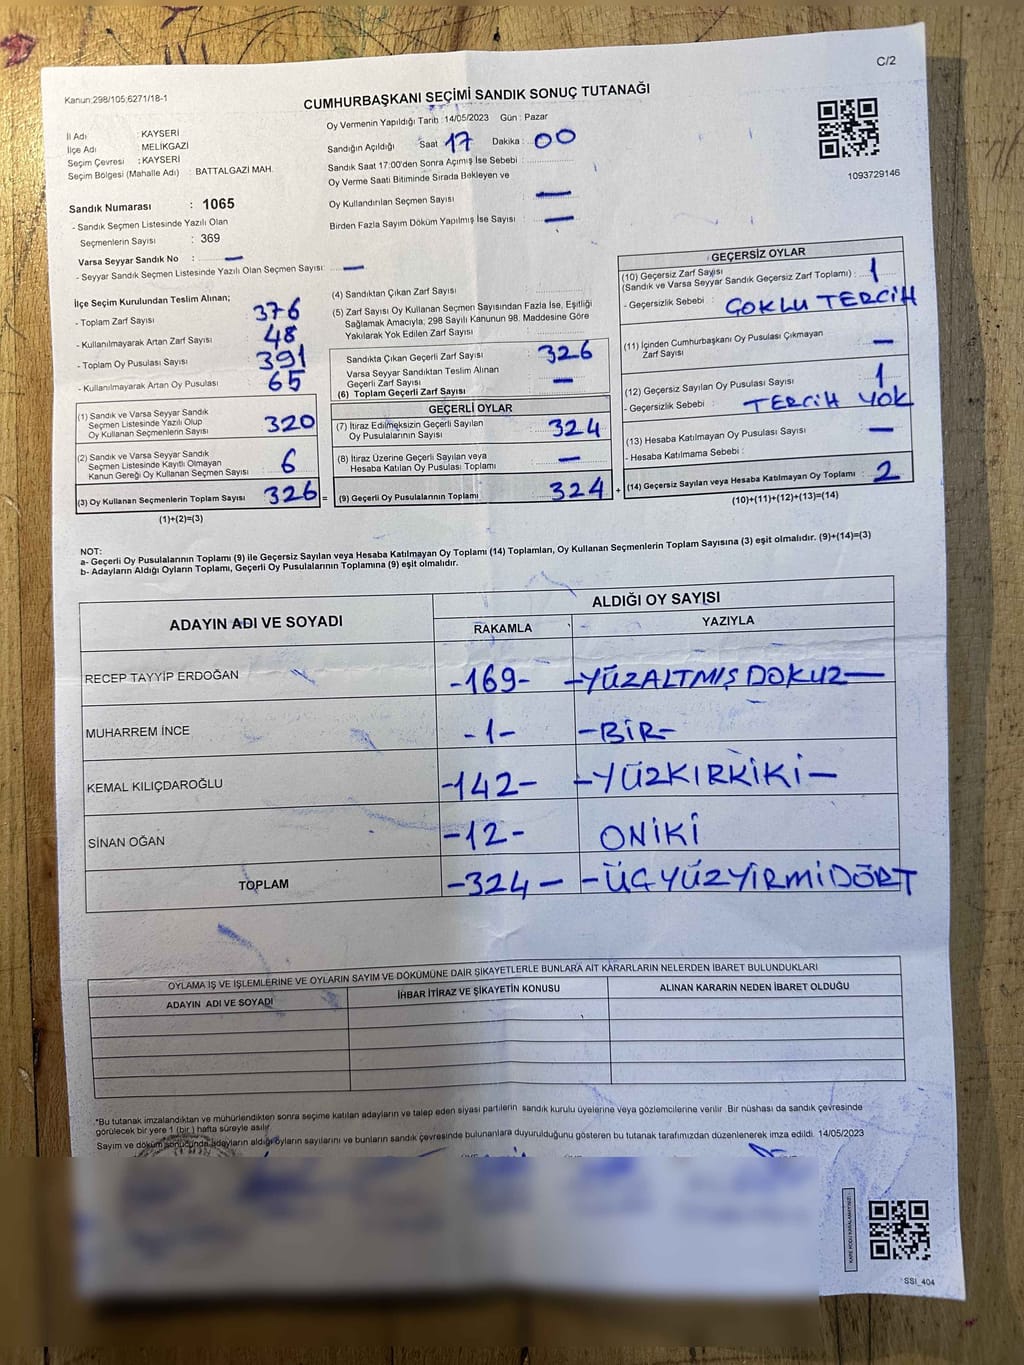 C/2
Kanun;298/105;6271/18-1
CUMHURBAŞKANI SEÇİMİ SANDIK SONUÇ TUTANAĞI
İl Adı : KAYSERİ
İlçe Adı MELİKGAZİ
Seçim Çevresi : KAYSERİ
Seçim Bölgesi (Mahalle Adı) : BATTALGAZİ MAH.
Sandık Numarası : 1065
- Sandık Seçmen Listesinde Yazılı Olan
Seçmenlerin Sayısı : 369
Varsa Seyyar Sandık No : —
- Seyyar Sandık Seçmen Listesinde Yazılı Olan Seçmen Sayısı: —
Oy Vermenin Yapıldığı Tarih : 14/05/2023 Gün : Pazar
Sandığın Açıldığı Saat 17 Dakika : 00
Sandık Saat 17:00'den Sonra Açımış İse Sebebi :
Oy Verme Saati Bitiminde Sırada Bekleyen ve
Oy Kullandırılan Seçmen Sayısı —
Birden Fazla Sayım Döküm Yapılmış İse Sayısı : —
1093729146
İlçe Seçim Kurulundan Teslim Alınan;
- Toplam Zarf Sayısı 376
- Kullanılmayarak Artan Zarf Sayısı 48
- Toplam Oy Pusulası Sayısı 391
- Kullanılmayarak Artan Oy Pusulası 65
(1) Sandık ve Varsa Seyyar Sandık
Seçmen Listesinde Yazılı Olup
Oy Kullanan Seçmenlerin Sayısı 320
(2) Sandık ve Varsa Seyyar Sandık
Seçmen Listesinde Kayıtlı Olmayan
Kanun Gereği Oy Kullanan Seçmen Sayısı 6
(3) Oy Kullanan Seçmenlerin Toplam Sayısı 326 =
(1)+(2)=(3)
(4) Sandıktan Çıkan Zarf Sayısı
(5) Zarf Sayısı Oy Kullanan Seçmen Sayısından Fazla İse, Eşitliği
Sağlamak Amacıyla, 298 Sayılı Kanunun 98. Maddesine Göre
Yakılarak Yok Edilen Zarf Sayısı
Sandıkta Çıkan Geçerli Zarf Sayısı 326
Varsa Seyyar Sandıktan Teslim Alınan
Geçerli Zarf Sayısı —
(6) Toplam Geçerli Zarf Sayısı
GEÇERLİ OYLAR
(7) İtiraz Edilmeksizin Geçerli Sayılan
Oy Pusulalarının Sayısı 324
(8) İtiraz Üzerine Geçerli Sayılan veya
Hesaba Katılan Oy Pusulası Toplamı —
(9) Geçerli Oy Pusulalarının Toplamı 324 +
GEÇERSİZ OYLAR
(10) Geçersiz Zarf Sayısı
(Sandık ve Varsa Seyyar Sandık Geçersiz Zarf Toplamı) : 1
- Geçersizlik Sebebi : ÇOKLU TERCİH
(11) İçinden Cumhurbaşkanı Oy Pusulası Çıkmayan
Zarf Sayısı —
(12) Geçersiz Sayılan Oy Pusulası Sayısı 1
- Geçersizlik Sebebi : TERCİH YOK
(13) Hesaba Katılmayan Oy Pusulası Sayısı —
- Hesaba Katılmama Sebebi :
(14) Geçersiz Sayılan veya Hesaba Katılmayan Oy Toplamı : 2
(10)+(11)+(12)+(13)=(14)
NOT:
a- Geçerli Oy Pusulalarının Toplamı (9) ile Geçersiz Sayılan veya Hesaba Katılmayan Oy Toplamı (14) Toplamları, Oy Kullanan Seçmenlerin Toplam Sayısına (3) eşit olmalıdır. (9)+(14)=(3)
b- Adayların Aldığı Oyların Toplamı, Geçerli Oy Pusulalarının Toplamına (9) eşit olmalıdır.
ADAYIN ADI VE SOYADI
ALDIĞI OY SAYISI
RAKAMLA YAZIYLA
RECEP TAYYİP ERDOĞAN -169- -YÜZALTMIŞ DOKUZ-
MUHARREM İNCE -1- -BİR-
KEMAL KILIÇDAROĞLU -142- -YÜZKIRKİKİ-
SİNAN OĞAN -12- ONİKİ
TOPLAM -324- -ÜÇYÜZYİRMİDÖRT
OYLAMA İŞ VE İŞLEMLERİNE VE OYLARIN SAYIM VE DÖKÜMÜNE DAİR ŞİKAYETLERLE BUNLARA AİT KARARLARIN NELERDEN İBARET BULUNDUKLARI
ADAYIN ADI VE SOYADI İHBAR İTİRAZ VE ŞİKAYETİN KONUSU ALINAN KARARIN NEDEN İBARET OLDUĞU
*Bu tutanak imzalandıktan ve mühürlendikten sonra seçime katılan adayların ve talep eden siyasi partilerin sandık kurulu üyelerine veya gözlemcilerine verilir .Bir nüshası da sandık çevresinde
görülecek bir yere 1 (bir ) hafta süreyle asılır
Sayım ve döküm sonucunda adayların aldığı oyların sayılarını ve bunların sandık çevresinde bulunanlara duyurulduğunu gösteren bu tutanak tarafımızdan düzenlenerek imza edildi. 14/05/2023
SSI_404